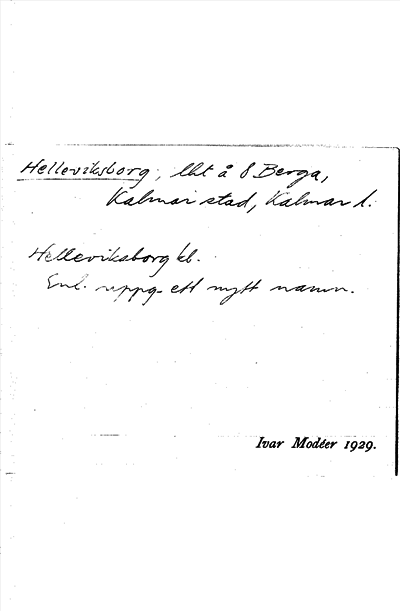 Helleviksborg, lht å 8 Berga,
Kalmar stad, Kalmar l.
Helleviksborg kl.
Enl. uppg. ett nytt namn.
Ivar Modéer 1929.